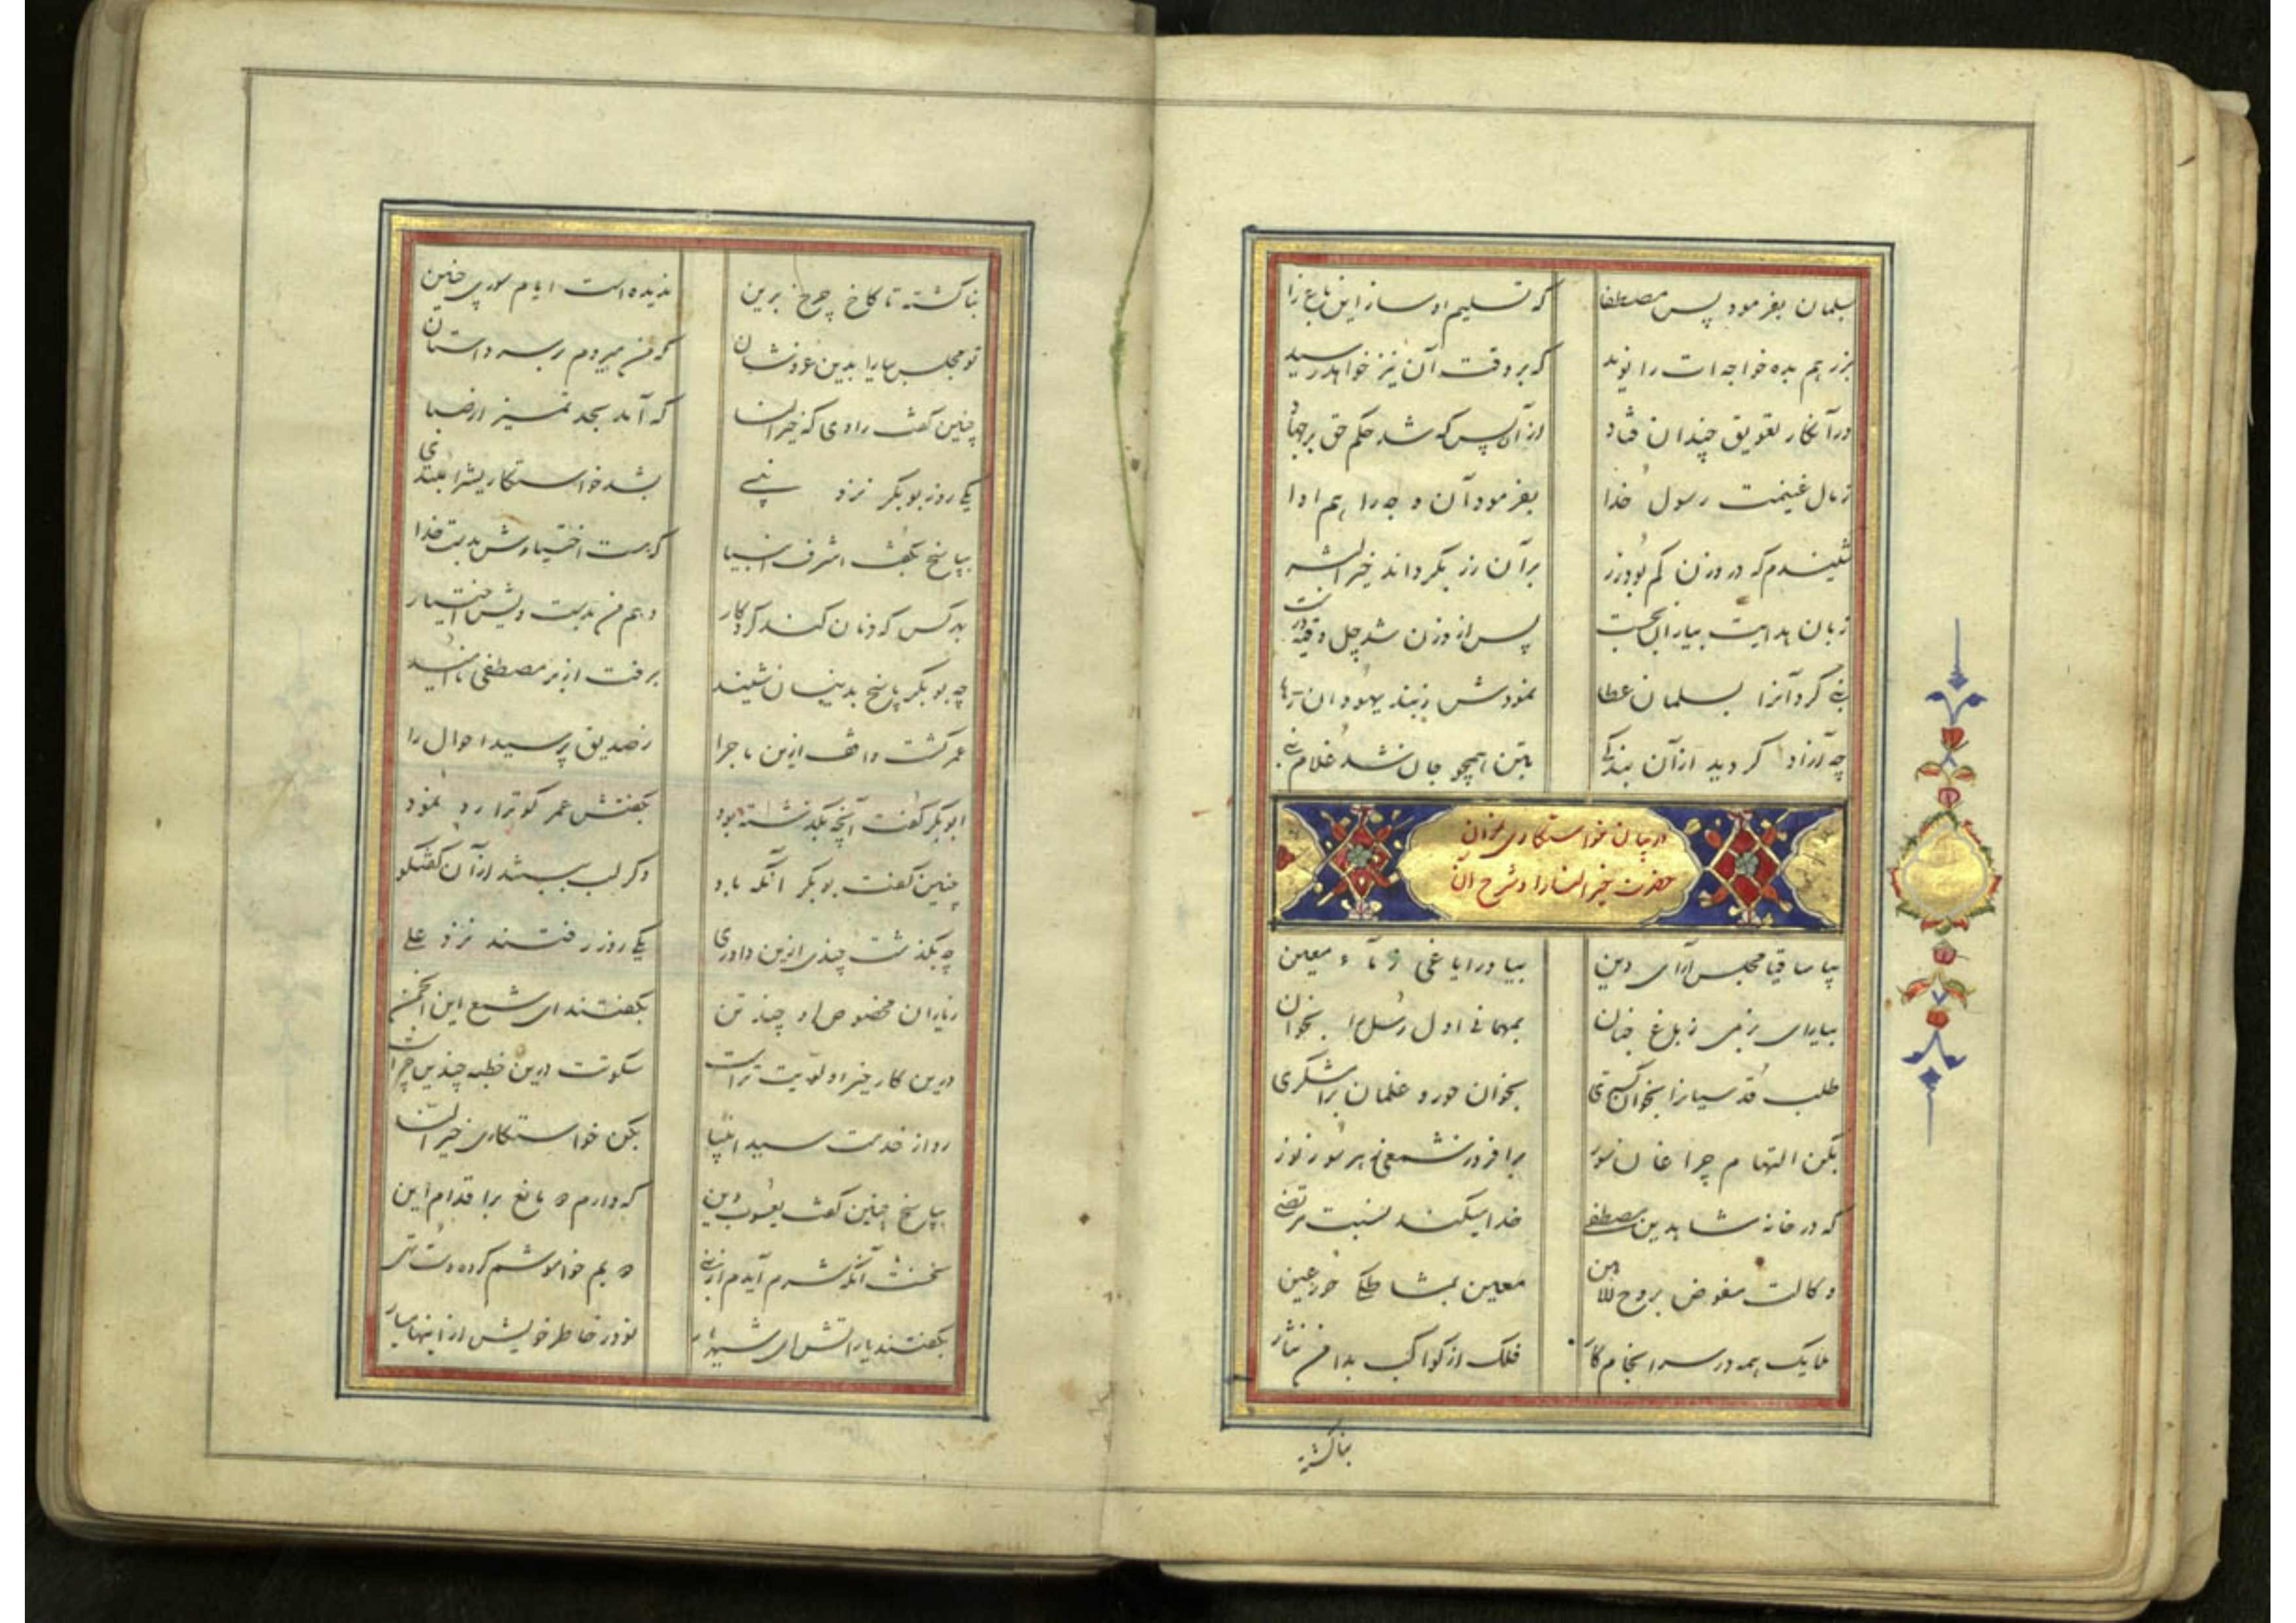 بسلمان بفرمود پس مصطفا که تسلیم او ساز این باغ را
بزر هم بده خواجه ات را نوید که بر وقت آن نیز خواهد رسید
در آنکار تعویق چندان فتاد از آن پس که شد حکم حق بر جهاد
ز مال غنیمت رسول خدا بفرمود آن وجه را هم ادا
شنیدم که در وزن کم بود زر بر آن زر بگرداند خیر البشر
زبان هدایت بیاران بجست پس از وزن شد چل وقیه درست
نبی کرد آنرا بسلمان عطا نمودش ز بند یهودان رها
چه آزاد گردید از آن بندگی بتن همچو جان شد غلام نبی
در بیان خواستکاری نمودن
حضرت خیر النسا را و شرح آن
بیا ساقیا مجلس آرای دین بیاور ایاغی ز ماء معین
بیارای بزمی ز باغ جنان بمهمانی اول رسل را بخوان
طلب قدسیانرا بخوان گستری بخوان حور و غلمان برامشگری
بکن التهام چراغان سور برافروز شمعی بهر سو ز نور
که در خانه شاهدین مصطفی خدا میکند نسبت مرتضی
وکالت مفوض بروح الامین معین بمشاطگی حور عین
ملایک همه در سرانجام کار فلک از کواکب بدامن نثار
بنا گشته
بنا گشته تا کاخ چرخ برین ندیده است ایام سوری چنین
تو مجلس بیارا بدین عز و شان که من میروم بر سر داستان
چنین گفت راوی که خیر النسا که آمد بحد تمیز از صبا
یکی روز بوبکر نزد نبی بشد خواستکاریش را مبتدی
بپاسخ بگفت اشرف انبیا که هست اختیارش بدست خدا
بهر کس که فرمان کند کردگار دهم من بدست ویش اختیار
چه بوبکر پاسخ بدینسان شنید برفت از بر مصطفی ناامید
عمر گشت واقف ازین ماجرا ز صدیق پرسید احوال را
ابوبکر گفت آنچه بگذشته بود بگفتش عمر کو ترا رد نمود
چنین گفت بوبکر آنگه باو دگر لب ببستند از آن گفتگو
چه بگذشت چندی ازین داوری یکی روز رفتند نزد علی
ز یاران مخصوص او چند تن بگفتند ای شمع این انجمن
درین کار خیر اولویت تراست سکوتت درین خطبه چندین چراست
رو از خدمت سید انبیا بکن خواستکاری خیر النسا
بپاسخ چنین گفت یعسوب دین که دارم دو مانع بر اقدام این
نخست آنکه شرم آیدم از نبی دویم خاموشم کرده دست تهی
بگفتند یارانش ای شهریار تو در خاطر خویش از اینها میار